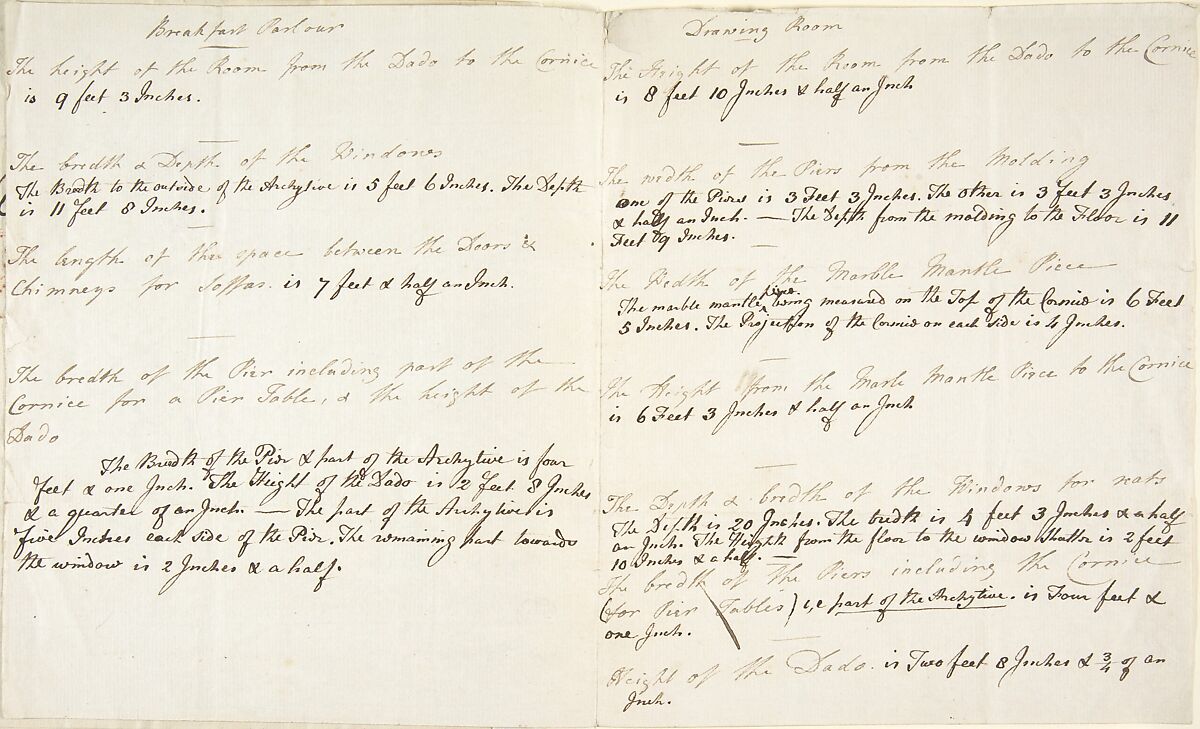 Breakfast Parlour
The height of the Room from the Dado to the Cornice
is 9 feet 3 Inches.
The bredth & Depth of the Windows
The Bredth to the outside of the Archytive is 5 feet 6 Inches. The Depth
is 11 feet 8 Inches.
The length of the space between the Doors &
Chimneys for Soffas. is 7 feet & half an Inch.
The bredth of the Pier including part of the
Cornice for a Pier Table, & the height of the
Dado
The Bredth of the Pier & part of the Archytive is four
feet & one Inch. The Height of the Dado is 2 feet 8 Inches
& a quarter of an Inch. — The part of the Archytive is
five Inches each side of the Pier. The remaining part towards
the window is 2 Inches & a half.
Drawing Room
The Height of the Room from the Dado to the Cornice
is 8 feet 10 Inches & half an Inch
The width of the Piers from the Molding
one of the Piers is 3 Feet 3 Inches. The other is 3 feet 3 Inches
& half an Inch. — The Depth from the molding to the Floor is 11
Feet 9 Inches.
The Wedth of the Marble Mantle Piece
The marble mantle piece being measured on the Top of the Cornice is 6 Feet
5 Inches. The Projection of the Cornice on each side is 4 Inches.
The Height from the Marle Mantle Piece to the Cornice
is 6 Feet 3 Inches & half an Inch
The Depth & bredth of the Windows for seats
The Depth is 20 Inches. The bredth is 4 feet 3 Inches & a half
an Inch. The Height from the floor to the window Shutter is 2 feet
10 Inches & a half.
The bredth of the Piers including the Cornice
(for Pier Tables) i,e part of the Archytive. is Four feet &
one Inch.
Height of the Dado. is Two feet 8 Inches & 3/4 of an
Inch.